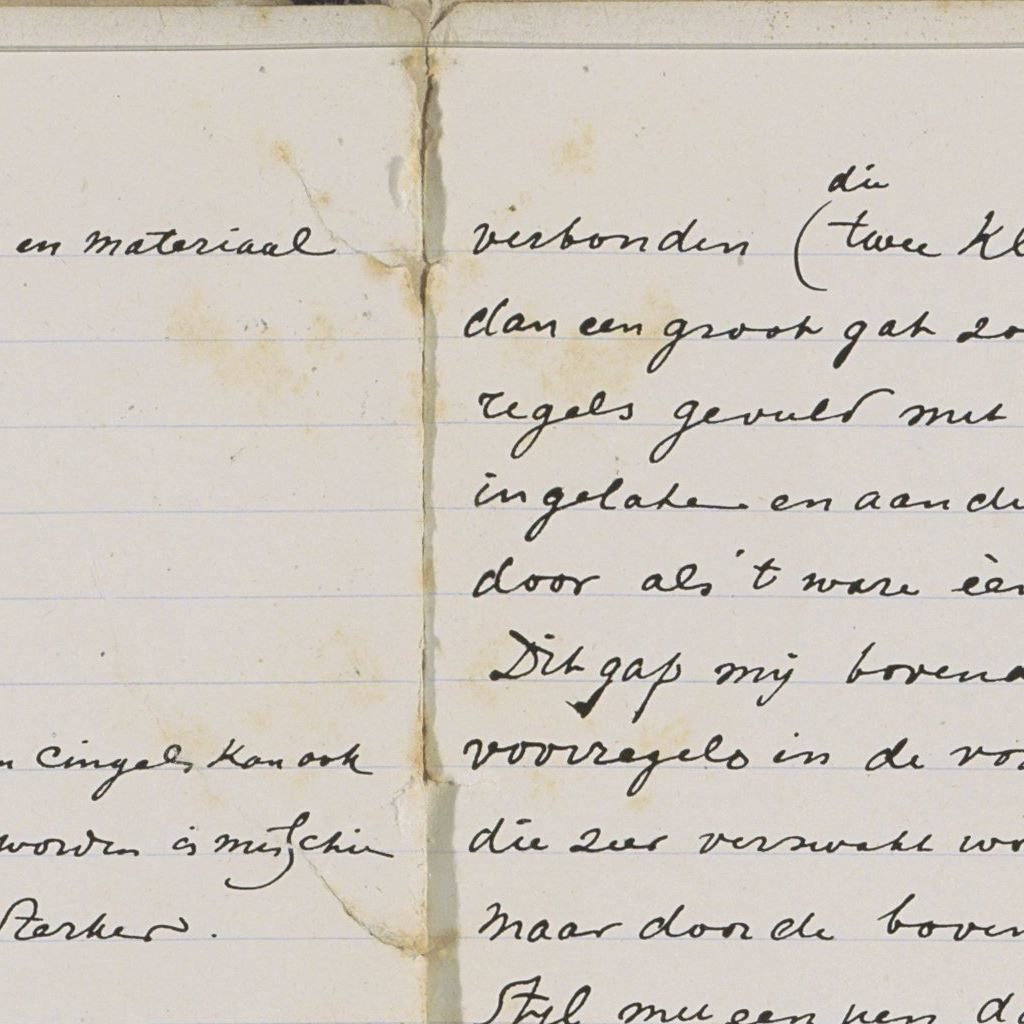 en materiaal
cingels kan ook
worden is misschien
sterker.
die
verbonden (twee kl
dan een groot gat zo
regels gevuld met
ingelaten en aan de
door als 't ware één
Dit gap mij bovena
voorregels in de voo
die zeer verswakt wo
maar door de boven
Styl met een